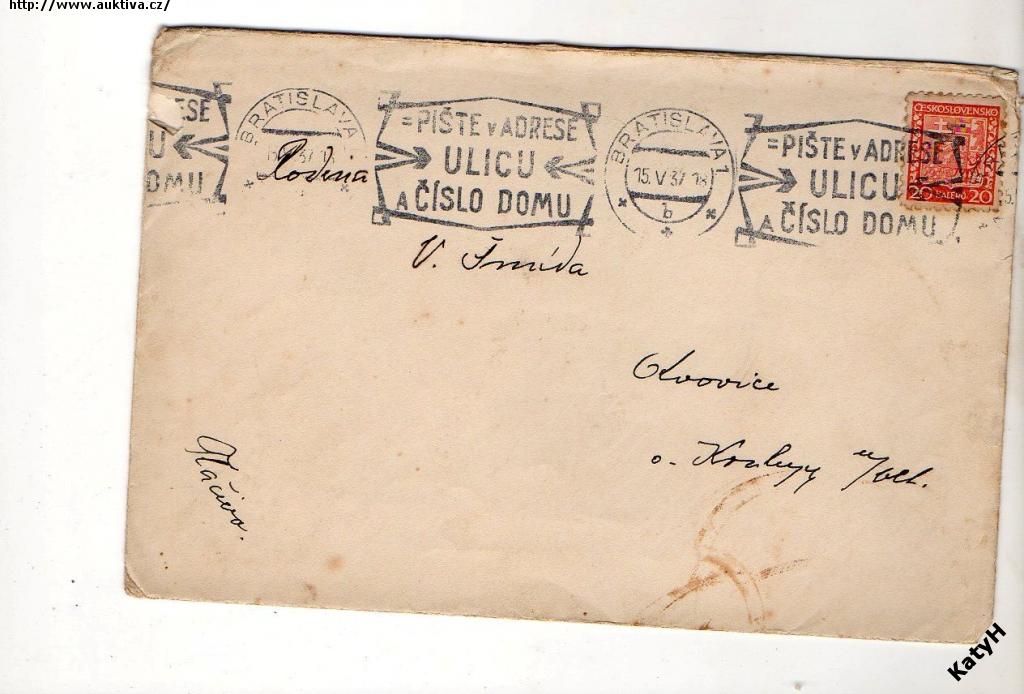 http://www.auktiva.cz/
ESE
U
DOMU
BRATISLAVA
Rodina
=PIŠTE v ADRESE
ULICU
A ČÍSLO DOMU
BRATISLAVA 1
15. V 37 18
b
=PIŠTE v ADRESE
ULICU
A ČÍSLO DOMU
ČESKOSLOVENSKO
20 HALÉŘŮ 20
V. Šmída
o. Kralupy n/Vlt.
KatyH